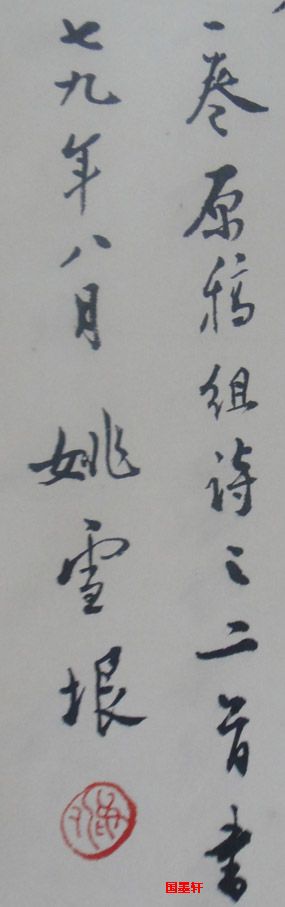 一卷原稿组诗之二首书
七九年八月 姚雪垠
国墨轩